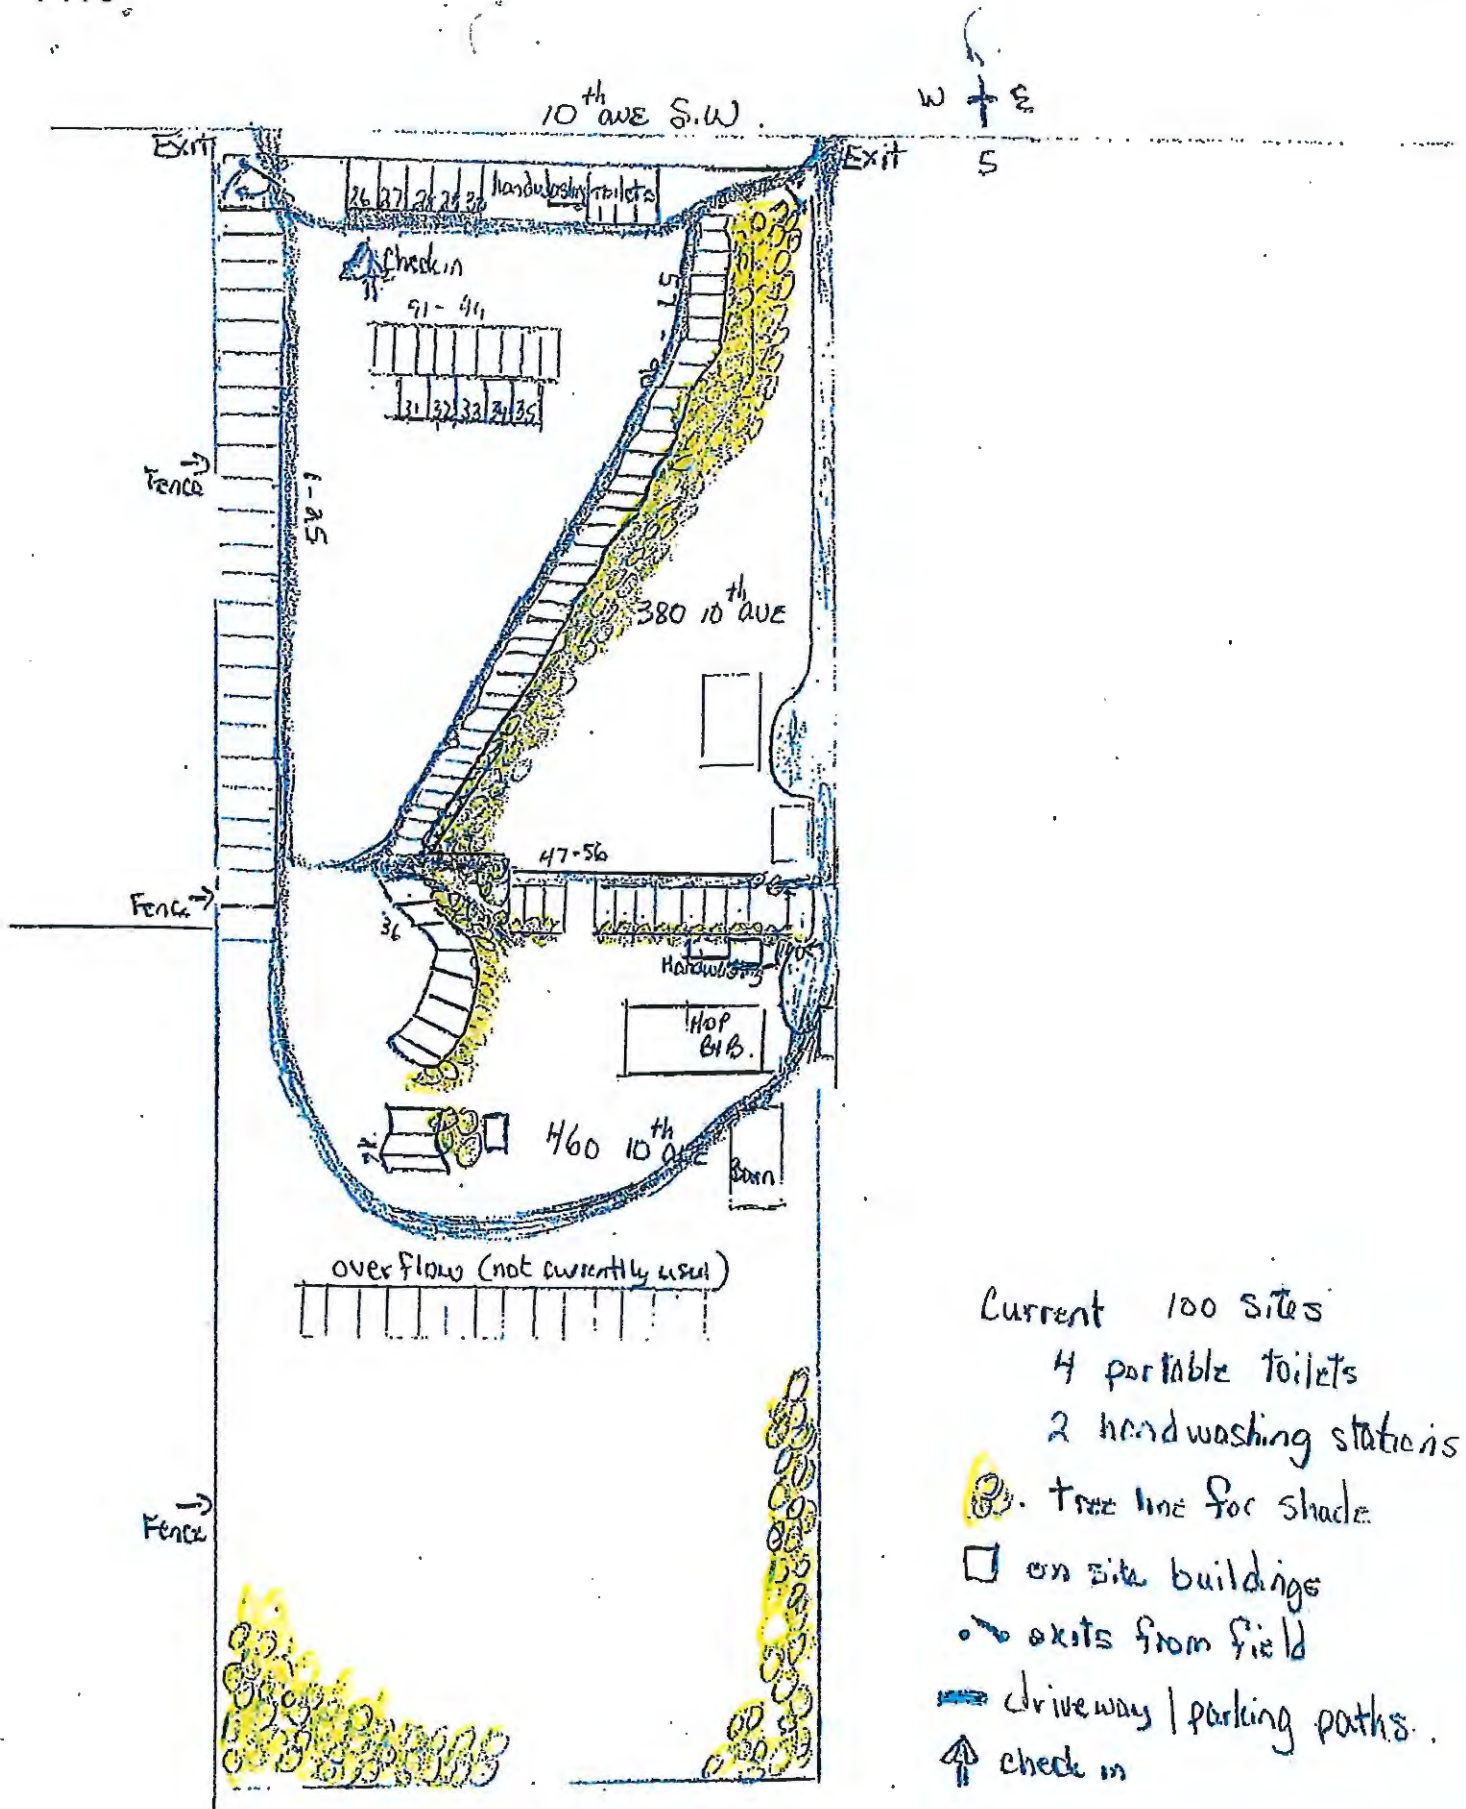 10th AVE S.W.
W E
S
Exit
Exit
26 27 28 29 30 handwashing toilets
Check in
91 -
31 32 33 34 35
57 -
Fence
1-25
380 10th AVE
47-56
Fence
36
Handwashing
HOP
460 10th AVE
Barn
overflow (not currently used)
Current 100 sites
4 portable toilets
2 handwashing stations
tree line for shade
Fence
on site buildings
exits from field
driveway / parking paths.
check in